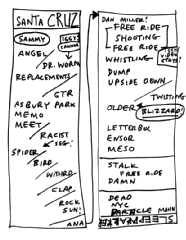 SANTA CRUZ
SAMMY
IGGY
CANNON
ANGEL
DR. WORM
REPLACEMENTS
GTR
ASBURY PARK
MEMO
MEET
RACIST
SEG!
SPIDER
BIRD
WITHRD
CLAP
ROCK
SUN!
ANA
DAN MILLER!
FREE RIDE
SHOOTING
FREE RIDE
WHISTLING
DUMP
UPSIDE DOWN
TWISTING
OLDER
BLIZZARD
LETTERBOX
ENSOR
MESO
STALK
FREE RIDE
DAMN
DEAD
NYC
MAHN